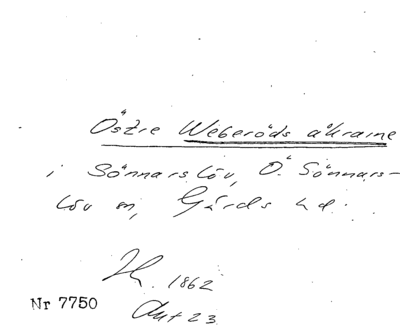 Östre Weberöds åkrarne
i Sönnarslöv, Ö. Sönnars-
löv sn, Gärds hd.
1862
Nr 7750
Akt 23